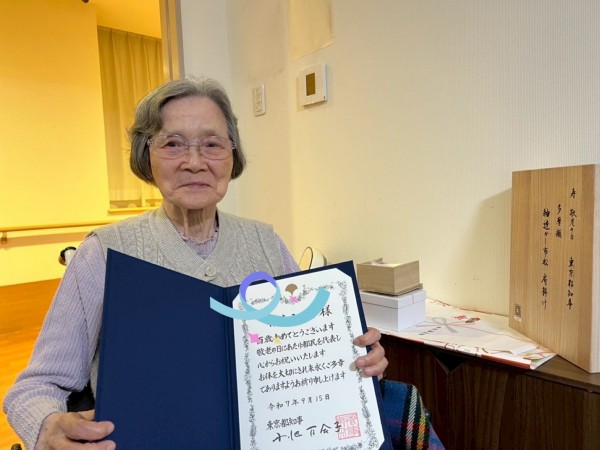 様
百歳おめでとうございます
敬老の日にあたり都民を代表し
心からお祝いいたします
お体を大切にされ末永くご多幸
でありますようお祈り申し上げます
令和7年9月15日
東京都知事
小池百合子
寿 敬老の日
東京都知事